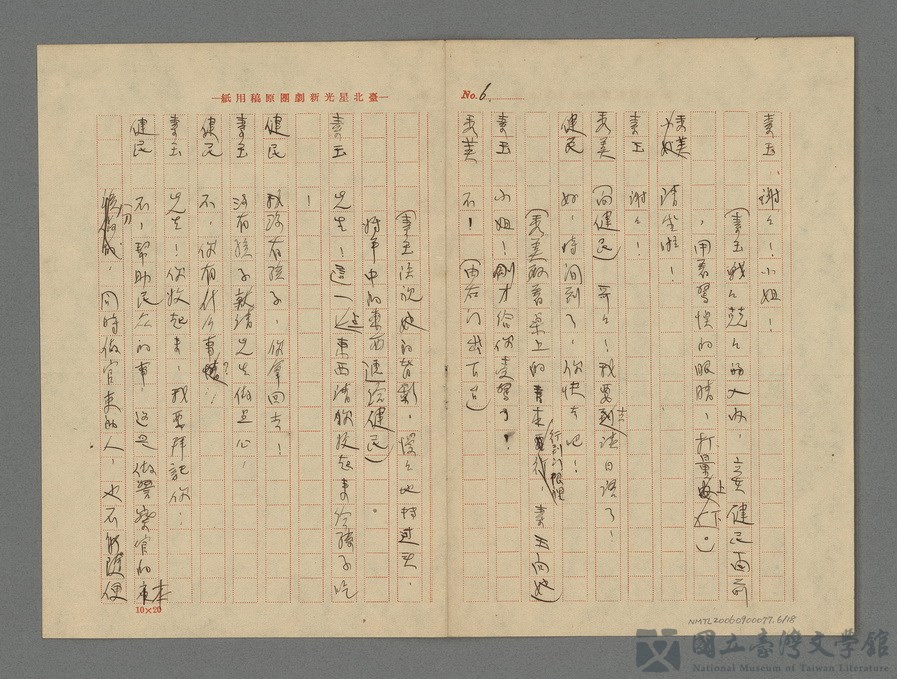 No. 6.
素玉 謝々！小姐！
(素玉戰々兢々的入內，立要健民面前
，用著驚懼的眼睛，打量上下。)
秀美 小姐 請坐啦！
素玉 謝々！
秀美 (向健民) 哥々！我要去法日課了！
健民 好，時間到了，你快去吧！
(秀美取著桌上的書本行到門眼裡，素玉向她)
素玉 小姐！剛才給你走驚了！
秀美 不！ (由右門出下台)
—臺北星光新劇團原稿用紙—
(素玉注視她的背影，慢々地持過頭，
將手中的東西遞給健民)。
素玉 先生！這一些東西請你收起來給孩子吃
！
健民 我沒有孩子，你拿回去！
素玉 沒有孩子就請先生做點心，
健民 不，你有什么事情？
素玉 先生！你收起來，我要拜託你！
健民 不，幫助民众的事，这是做警察官的本
份，同時做官吏的人，也不能隨便
10×20
NMTL20060900077.6/18
國立臺灣文學館
National Museum of Taiwan Literature